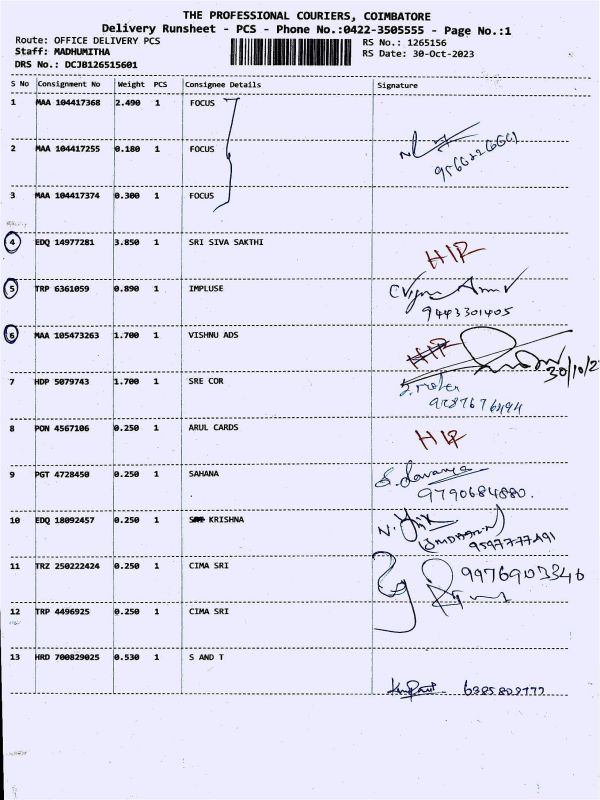 THE PROFESSIONAL COURIERS, COIMBATORE
Delivery Runsheet - PCS - Phone No.:0422-3505555 - Page No.:1
Route: OFFICE DELIVERY PCS RS No.: 1265156
Staff: MADHUMITHA RS Date: 30-Oct-2023
DRS No.: DCJB126515601
S No Consignment No Weight PCS Consignee Details Signature
1 MAA 104417368 2.490 1 FOCUS
2 MAA 104417255 0.180 1 FOCUS
3 MAA 104417374 0.300 1 FOCUS
4 EDQ 14977281 3.850 1 SRI SIVA SAKTHI
5 TRP 6361059 0.890 1 IMPLUSE
9443301405
6 MAA 105473263 1.700 1 VISHNU ADS
30/10/2
7 HDP 5079743 1.700 1 SRE COR
8 PON 4567106 0.250 1 ARUL CARDS
9 PGT 4728450 0.250 1 SAHANA
S. Lavanya
9790684880.
10 EDQ 18092457 0.250 1 KRISHNA
11 TRZ 250222424 0.250 1 CIMA SRI
9976903346
12 TRP 4496925 0.250 1 CIMA SRI
13 HRD 700829025 0.530 1 S AND T